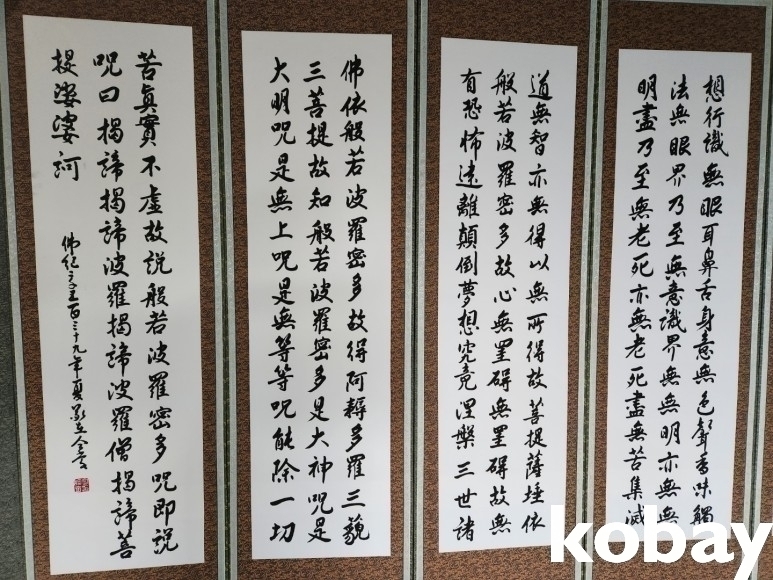 想行識無眼耳鼻舌身意無色聲香味觸
法無眼界乃至無意識界無無明亦無無
明盡乃至無老死亦無老死盡無苦集滅
道無智亦無得以無所得故菩提薩埵依
般若波羅密多故心無罣礙無罣礙故無
有恐怖遠離顛倒夢想究竟涅槃三世諸
佛依般若波羅密多故得阿耨多羅三藐
三菩提故知般若波羅密多是大神咒是
大明咒是無上咒是無等等咒能除一切
苦眞實不虛故說般若波羅密多咒即說
咒曰揭諦揭諦波羅揭諦波羅僧揭諦菩
提娑婆訶
佛紀 百三十九年夏
kobay